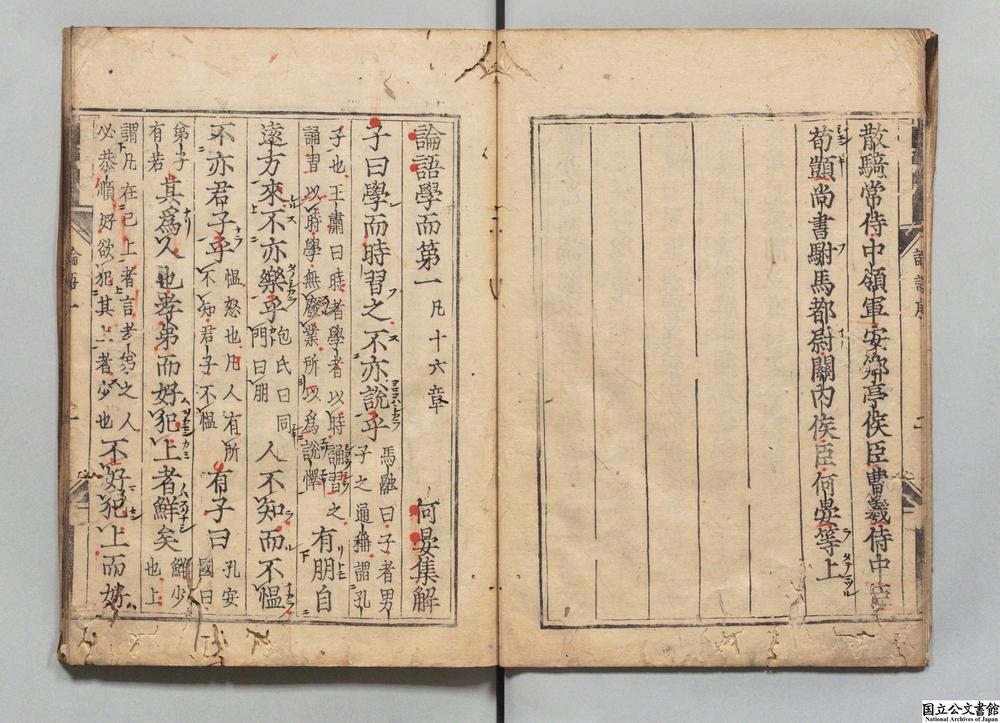 散騎常侍中領軍安鄉亭侯臣曹羲侍中臣
荀顗尚書駙馬都尉關內侯臣何晏等上
論語學而第一 凡十六章 何晏集解
子曰學而時習之不亦說乎 馬融曰子者男
子之通稱謂孔
子也王肅曰時者學者以時誦習之
誦習以時學無廢業所以爲說懌 有朋自
遠方來不亦樂乎 包氏曰同
門曰朋 人不知而不慍
不亦君子乎 慍怒也凡人有所
不知君子不慍 有子曰 孔安
國曰
弟子
有若 其爲人也孝弟而好犯上者鮮矣 鮮少
也上
謂凡在己上者言孝弟之人
必恭順好欲犯其上者少也 不好犯上而好
論語序
論語一
国立公文書館
National Archives of Japan